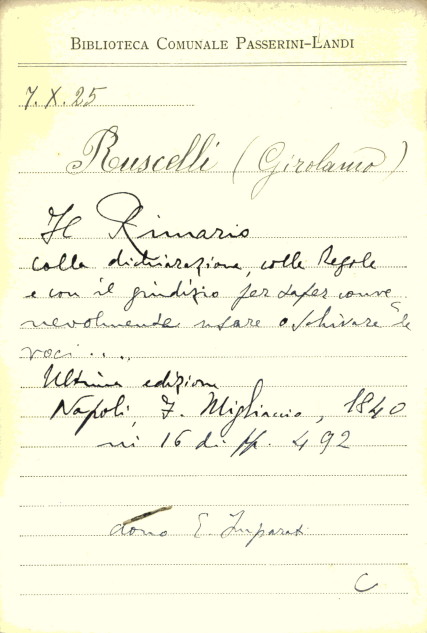 BIBLIOTECA COMUNALE PASSERINI-LANDI
7. X. 25
Ruscelli (Girolamo)
Il Rimario
colla dichiarazione, colle Regole
e con il giudizio per saper conve=
nevolmente usare o schivare le
voci ....
Ultima edizione
Napoli, F. Migliaccio, 1840
in 16 di pp. 492
dono E.
C